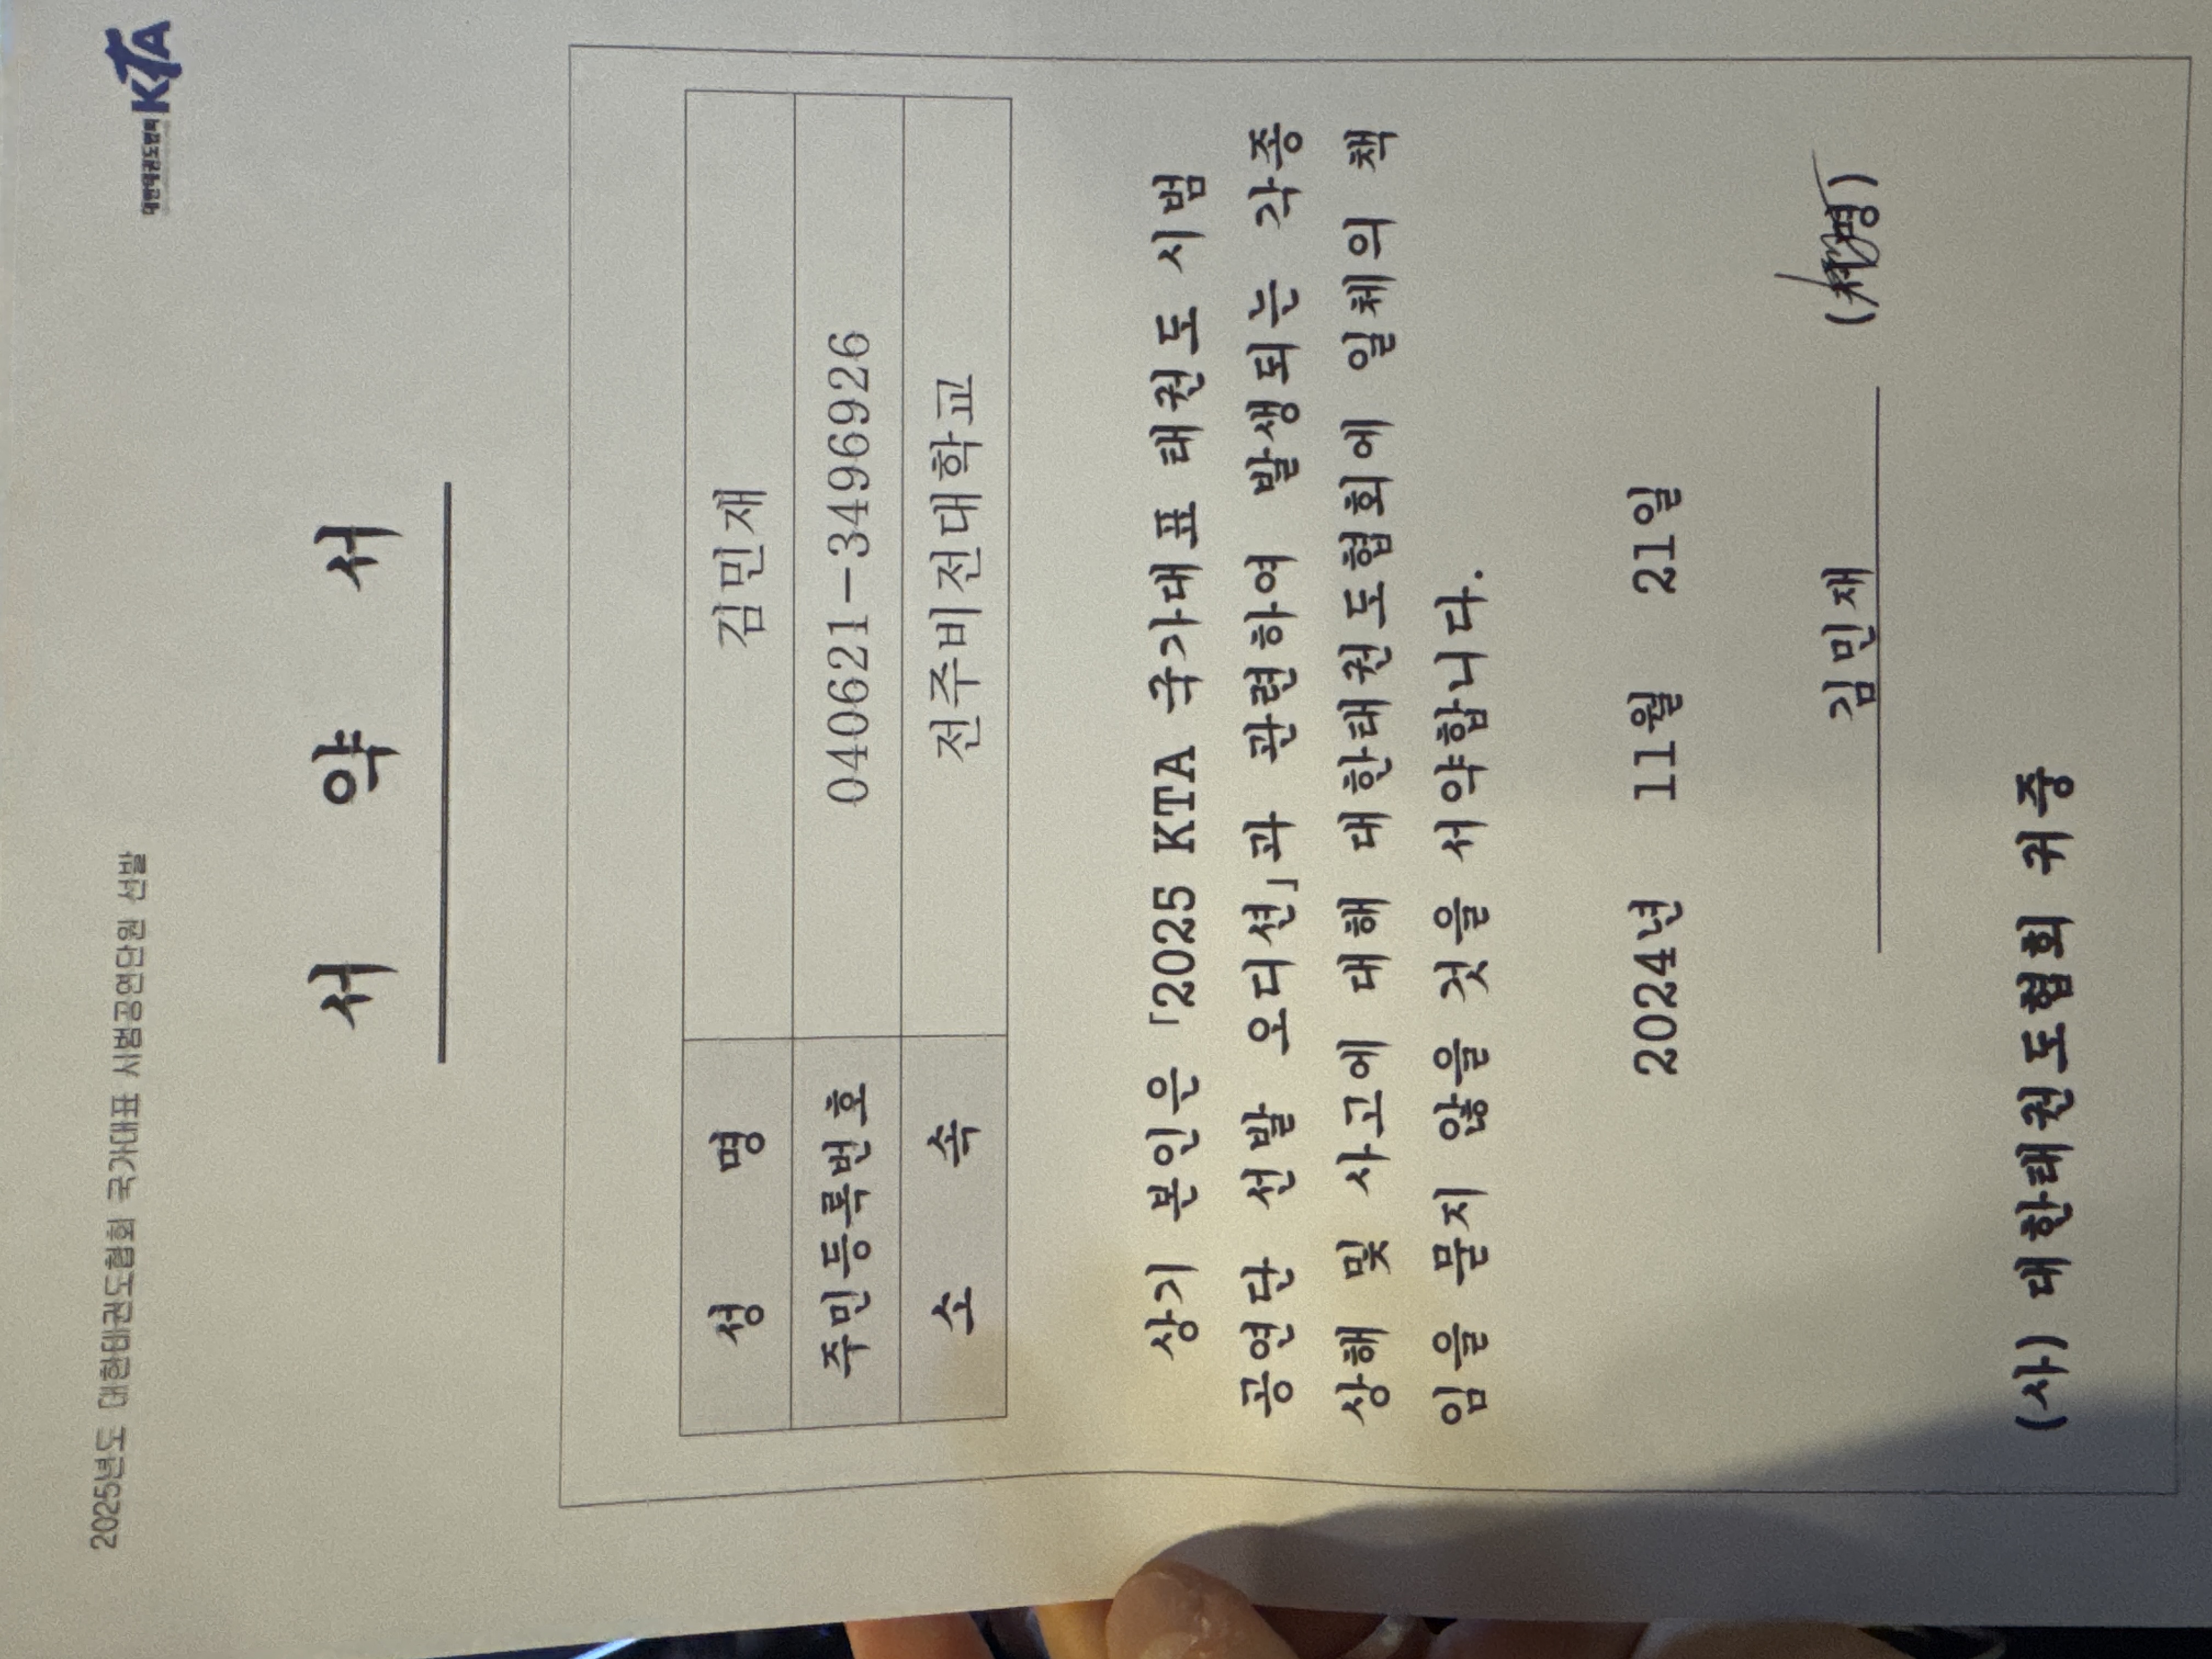 2025년도 대한태권도협회 국가대표 시범공연단원 선발
대한태권도협회 KTA
서 약 서
성 명 김민재
주민등록번호 040621-3496926
소 속 전주비전대학교
상기 본인은 「2025 KTA 국가대표 태권도 시범
공연단 선발 오디션」과 관련하여 발생되는 각종
상해 및 사고에 대해 대한태권도협회에 일체의 책
임을 묻지 않을 것을 서약합니다.
2024년 11월 21일
김민재 (서명)
(사) 대한태권도협회 귀중